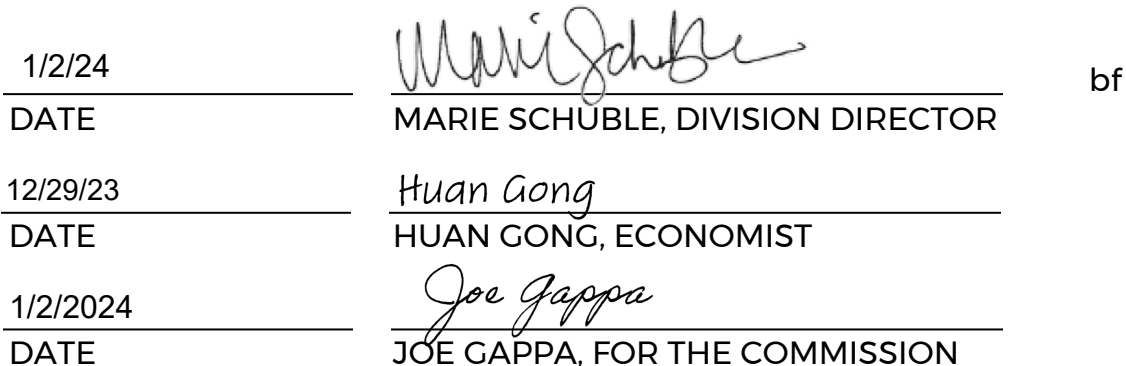 1/2/24 Marie Schuble bf
DATE MARIE SCHUBLE, DIVISION DIRECTOR
12/29/23 Huan Gong
DATE HUAN GONG, ECONOMIST
1/2/2024 Joe Gappa
DATE JOE GAPPA, FOR THE COMMISSION